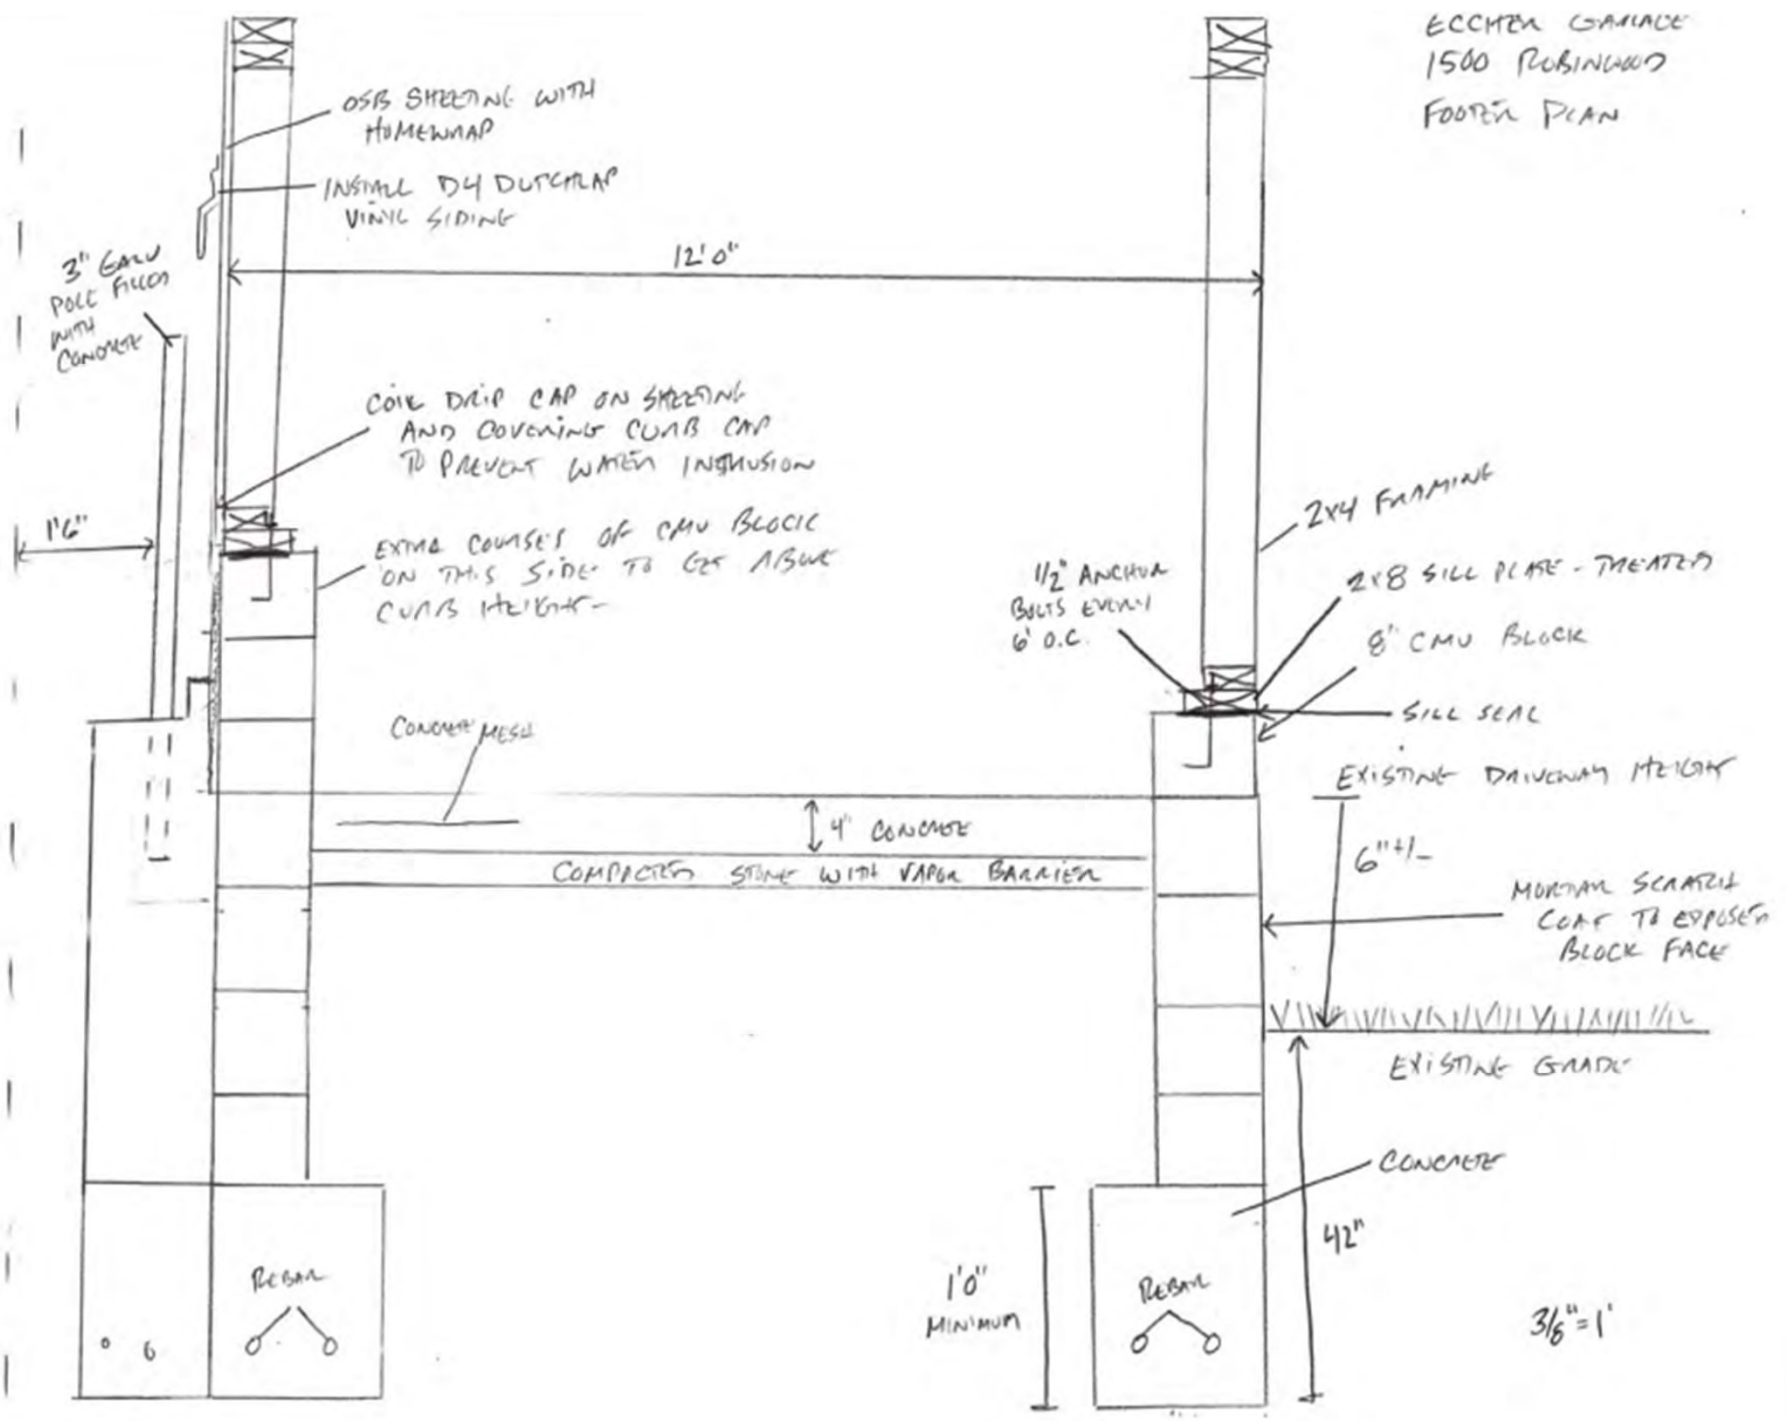 ECCHER GARAGE
1500 ROBINWOOD
FOOTER PLAN
OSB SHEETING WITH
HOMEWRAP
INSTALL D4 DUTCHLAP
VINYL SIDING
12'0"
3" GALV
POLE FILLED
WITH
CONCRETE
COIL DRIP CAP ON SHEETING
AND COVERING CURB CAP
TO PREVENT WATER INTRUSION
1'6"
EXTRA COURSES OF CMU BLOCK
ON THIS SIDE TO GET ABOVE
CURB HEIGHT-
2x4 FRAMING
1/2" ANCHOR
BOLTS EVERY
6' O.C.
2x8 SILL PLATE - TREATED
8" CMU BLOCK
SILL SEAL
CONCRETE MESH
EXISTING DRIVEWAY HEIGHT
4" CONCRETE
6" +/-
COMPACTED STONE WITH VAPOR BARRIER
MORTAR SCRATCH
COAT TO EXPOSED
BLOCK FACE
EXISTING GRADE
CONCRETE
42"
REBAR
1'0"
MINIMUM
REBAR
3/8" = 1'